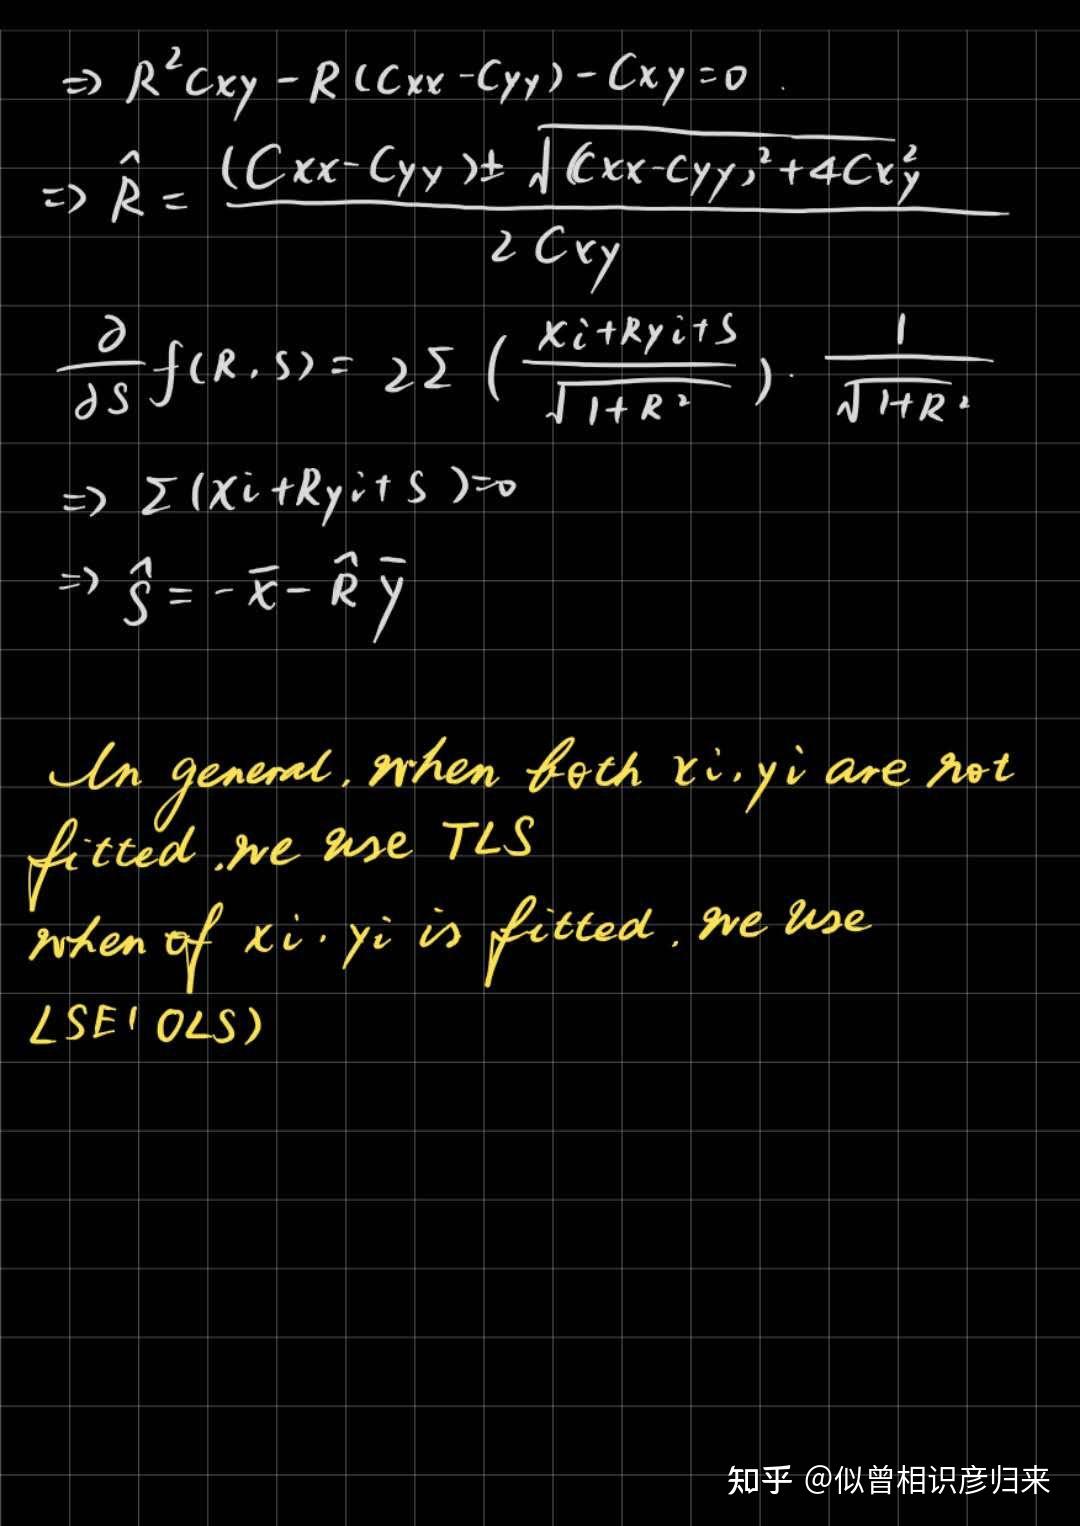 ⇒ R²Cxy - R(Cxx - Cyy) - Cxy = 0
⇒ R̂ = ((Cxx - Cyy) ± √((Cxx - Cyy)² + 4Cxy²)) / (2Cxy)
∂/∂S f(R, S) = 2Σ ((xi + Ryi + S) / √(1 + R²)) · 1 / √(1 + R²)
⇒ Σ(xi + Ryi + S) = 0
⇒ Ŝ = -x̄ - R̂ȳ
In general, when both xi, yi are not
fitted, we use TLS
when of xi, yi is fitted, we use
LSE(OLS)
知乎 @似曾相识彦归来